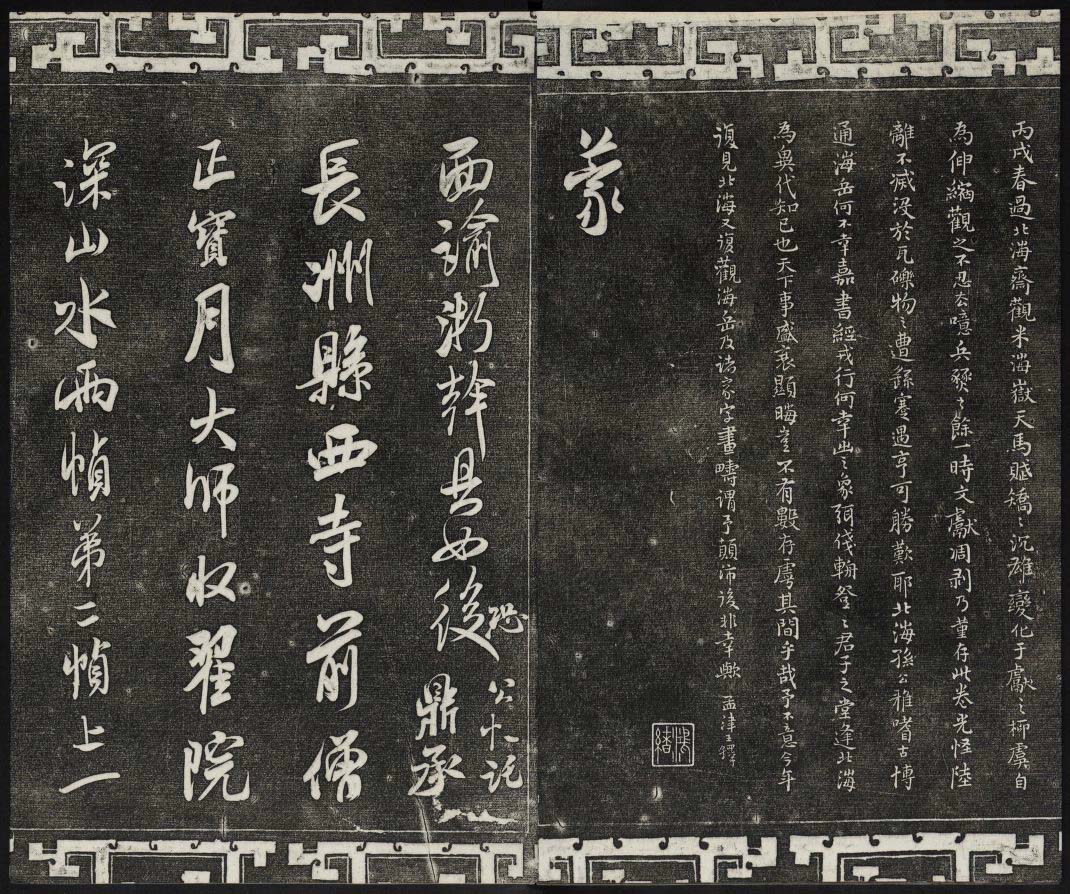 丙戌春過北海齋觀米海嶽天馬賦矯〻沉雄變化于獻〻柳虞自
為伸縮觀之不忍去噫兵燹之餘一時文獻凋剥乃堇存此卷光怪陸
離不滅没於瓦礫物〻遭繇蹇遇亨可勝歎耶北海孫公雅嗜古博
通海岳何不幸嘉書經戎行何幸此〻象弭登〻君子之堂逢北海
為異代知已也天下事盛衰顯晦豈不有數存虖其間乎哉予不意今年
復見北海又復觀海岳及諸家字畫疇謂予顛沛後非幸歟 孟津王鐸
蒙
面諭浙幹具如後恐公忙託鼎承
長洲縣西寺前僧
正寶月大師收翟院
深山水兩幀第二幀上一